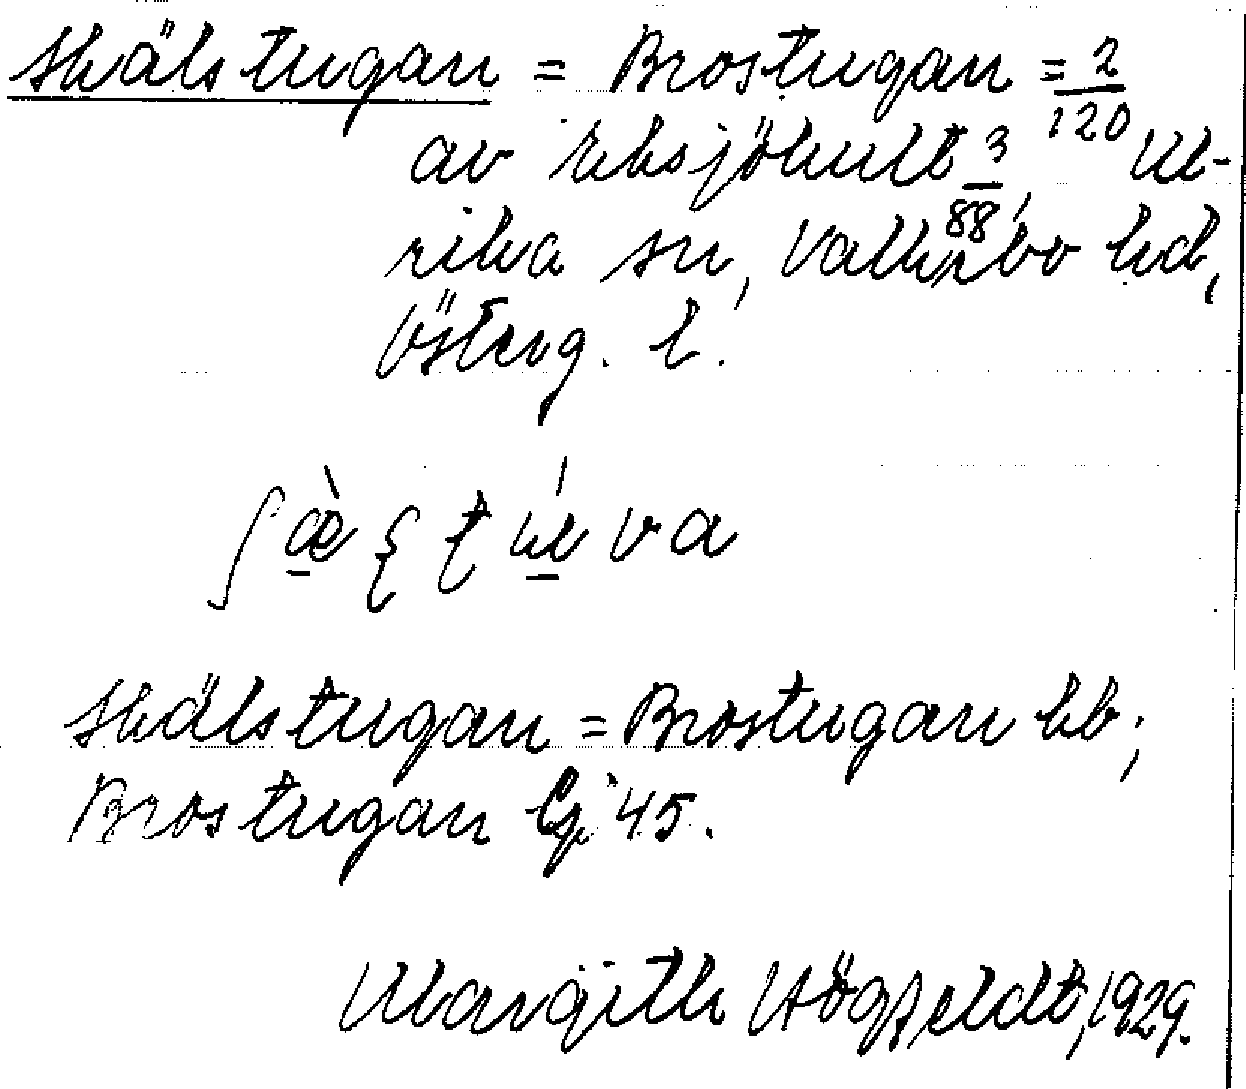 Skälstugan = Brostugan = 2/120
av Eksjöhult 3/88, Ul-
rika sn, Valkebo hd,
Österg. l.
Skälstugan = Brostugan kb;
Brostugan Cp 45.
Margith Högfeldt, 1929.